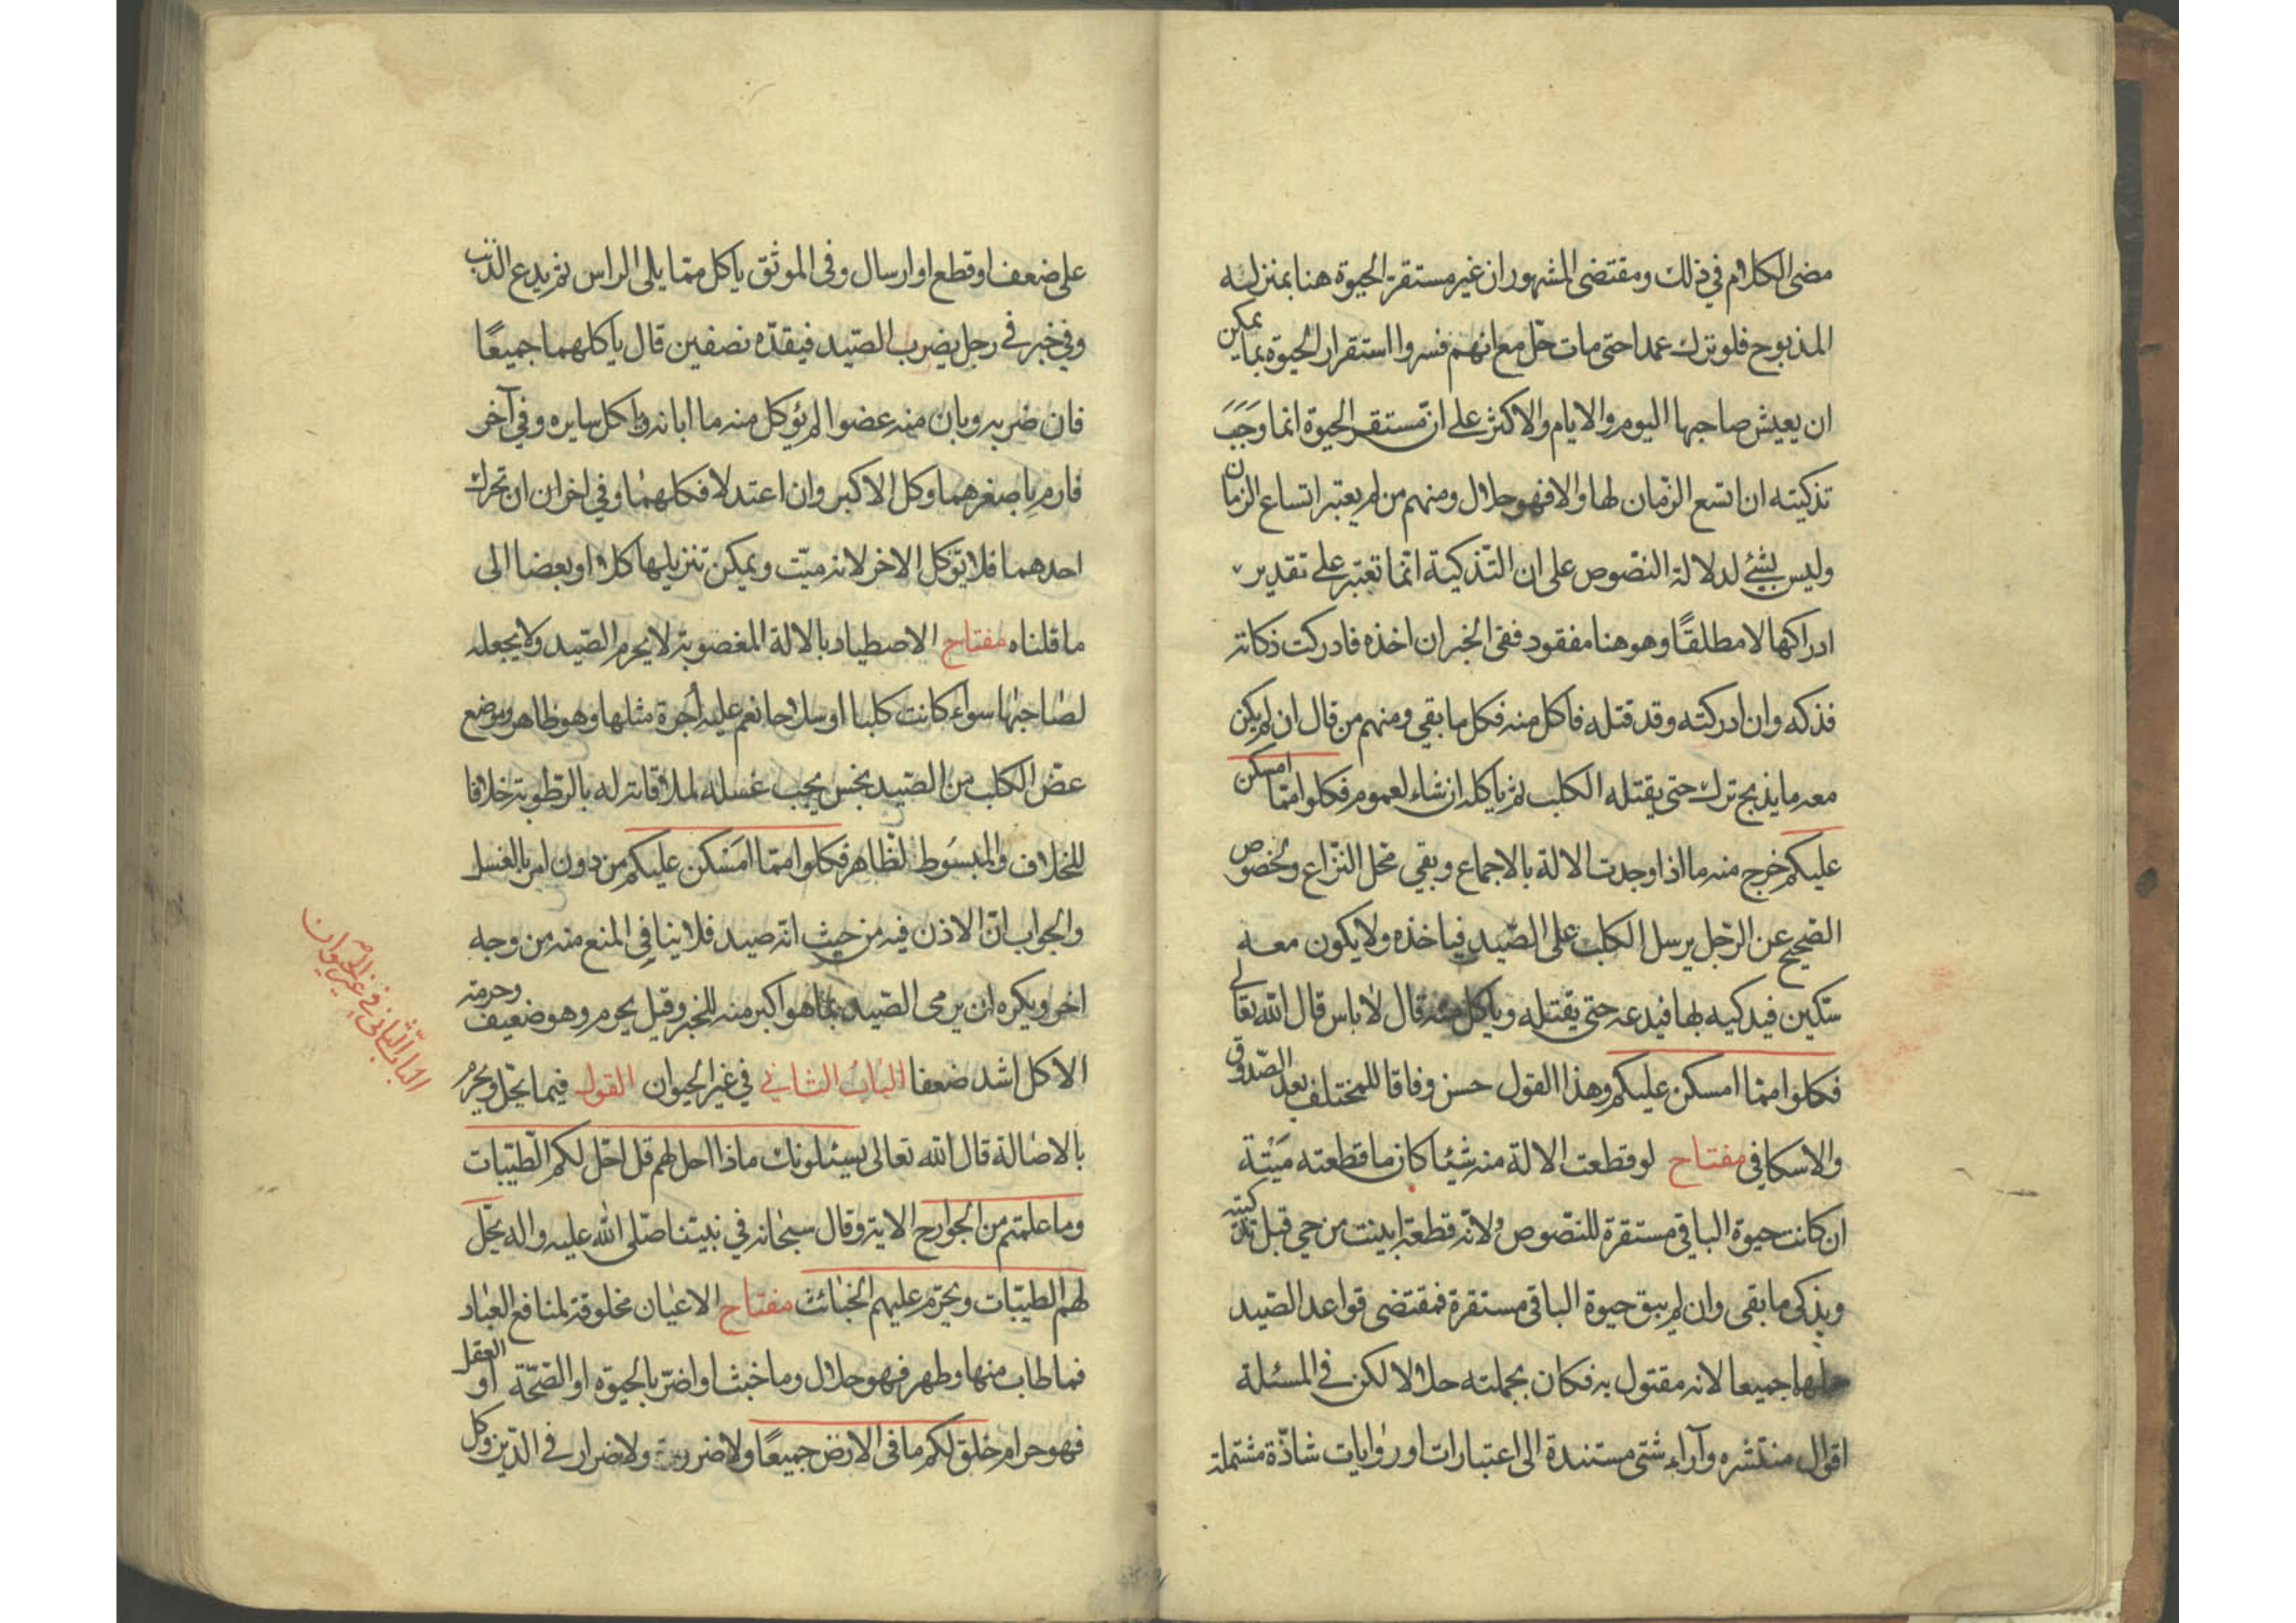 مضى الكلام في ذلك ومقتضى المشهور ان غير مستقرة الحيوة هنا بمنزلـه
المذبوح فلو ترك عمدا حتى مات حلّ مع انهم فسروا استقرار الحيوة بما يمكن
ان يعيش صاحبها اليوم والايام والاكثر على انّ مستقر الحيوة انما وَجَبَ
تذكيته ان اتسع الزّمان لها والا فهو حلال ومنهم من لم يعتبر اتساع الزمان
وليس بشئ لدلالة النصّوص على ان التّذكية انّما تعتبر على تقدير
ادراكها لا مطلقًا وهو هنا مفقود ففى الخبر ان اخذه فادركت ذكاته
فذكه وان ادركته وقد قتله فاكل منه فكل ما بقي ومنهم من قال ان لم يكن
معه ما يذبح ترك حتى يقتله الكلب ثم ياكله ان شاء لعموم فكلوا ممّا امسكن
عليكم خرج منه ما اذا وجدت الالة بالاجماع وبقي محل النزّاع ولخصوص
الصّحيح عن الرّجل يرسل الكلب على الصّيد فياخذه ولا يكون معه
سكّين فيذكيه بها فيدعه حتى يقتله وياكل منه قال لا باس قال الله تعالى
فكلوا ممّا امسكن عليكم وهذا القول حسن وفاقا للمختلف بعد الصّدوق
والاسكافي مفتاح لو قطعت الالة منه شيئا كان ما قطعته ميَتة
ان كانت حيوة الباقي مستقرة للنصّوص ولانّه قطعة ابينت من حي قبل تذكيته
ويذكى ما بقى وان لم يبق حيوة الباقى مستقرة فمقتضى قواعد الصّيد
حلها جميعا لانه مقتول به فكان بجملته حلالا لكن في المسئلة
اقوال منتشره وآراء شتى مستندة الى اعتبارات او روايات شاذّة مشتملة
على ضعف او قطع او ارسال وفى الموثق ياكل ممّا يلى الراس ثم يدع الذّنب
وفي خبر في رجل يضرب الصّيد فيقدّه نصفين قال ياكلهما جميعًا
فان ضربه وبان منه عضوا لم يؤكل منه ما ابانه واكل سايره وفي آخر
فارم باصغرهما وكل الاكبر وان اعتدلا فكلهمٰا وفي اخر ان ان تحرك
احدهما فلا تؤكل الاخر لانه ميّت ويمكن تنزيلها كلا او بعضا الى
ما قلناه مفتاح الاصطياد بالالة المغصوبة لا يحرم الصّيد ولا يجعله
لصٰاحبهٰا سوٰاء كانت كلبا او سلاحا نعم عليه اُجرة مثلها وهو ظاهر وموضع
عضّ الكلب من الصّيد نجس يجب غسله لملاقاته له بالرّطوبة خلافا
للخلاف والمبسُوط لظّاهر فكلوا ممّا امَسْكن عليكم من دون امر بالغسل
والجواب انّ الاذن فيه من حيث انّه صيد فلا ينافي المنع منه من وجه
اخر ويكره ان يرمى الصّيد بما هو اكبر منه للخبر وقيل يحرم وهو ضعيف وحرمته
الاكل اشد ضعفا البٰابُ الثاني في غير الحيوان القول فيما يحلّ ويحرم
بالاصٰالة قال الله تعالى يسئلونك ماذا احل لهم قل احّل لكم الطّيّبات
وما علمتم من الجوارح الاية وقال سبحٰانه في نبيّنا صّلى الله عليه واله يحّل
لهم الطيبّات ويحرّم عليهم الخبٰائث مفتاح الاعيٰان مخلوقة لمنافع العبٰاد
فما طاب منها وطهر فهو حلال وما خبث او اضرّ بالحيوة او الصّحّة او العقل
فهو حرام خلق لكم ما فى الارض جميعًا ولا ضرر ولا ضرار في الدّين وكل
البٰاب الثّانى في غير الحيوان